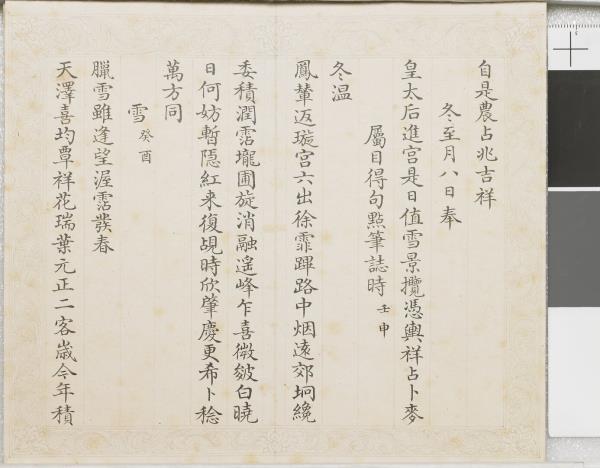 自是農占兆吉祥
冬至月八日奉
皇太后進宮是日值雪景攬憑輿祥占卜麥
屬目得句㸃筆誌時 壬申
冬温
鳳輦迓璇宮六出徐霏蹕路中烟遠郊坰纔
委積潤霑壠圃旋消融遥峰乍喜微皴白曉
日何妨暫隠紅来復覘時欣肇慶更希卜稔
萬方同
雪 癸酉
臘雪雖逢望渥霑發春
天澤喜均覃祥花瑞葉元正二客歲今年積